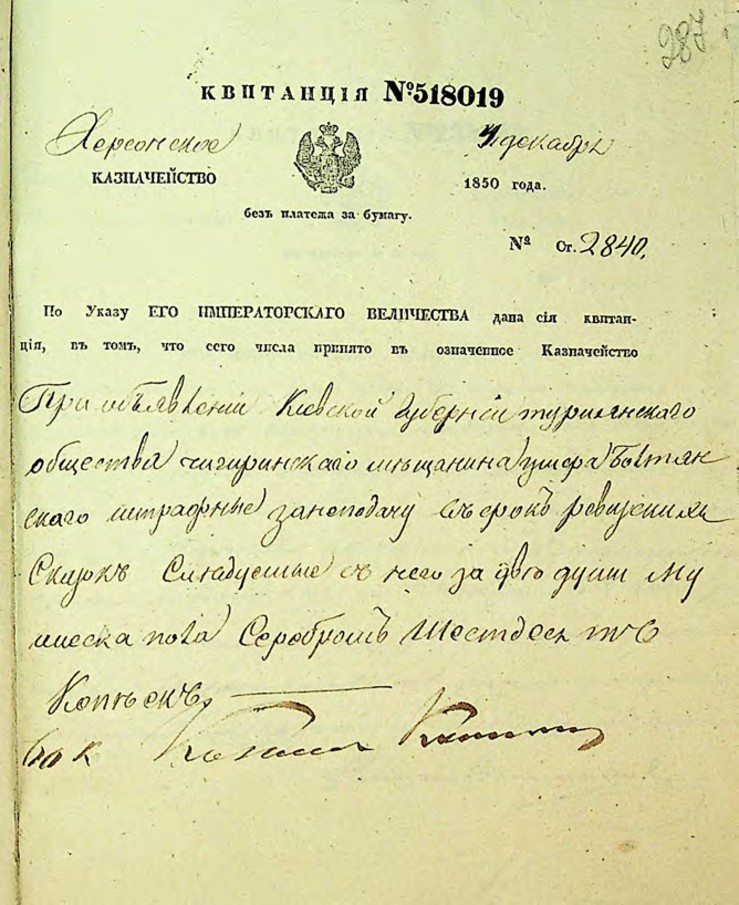 287
КВИТАНЦІЯ №518019
Херсонское 4 декабря
КАЗНАЧЕЙСТВО 1850 года.
безъ платежа за бумагу.
№ Ст. 2840.
По Указу ЕГО ИМПЕРАТОРСКАГО ВЕЛИЧЕСТВА дана сія квитан-
ція, въ томъ, что сего числа принято въ означенное Казначейство
При объявленіи Кіевской Губерніи туріянскаго
общества чигиринскаго мѣщанина
скаго штрафные за неподачу въ срокъ ревизскихъ
Сказокъ Слѣдуемые съ него за душъ Му
пола Серебромъ Шестдесятъ
Копѣекъ,
60 к